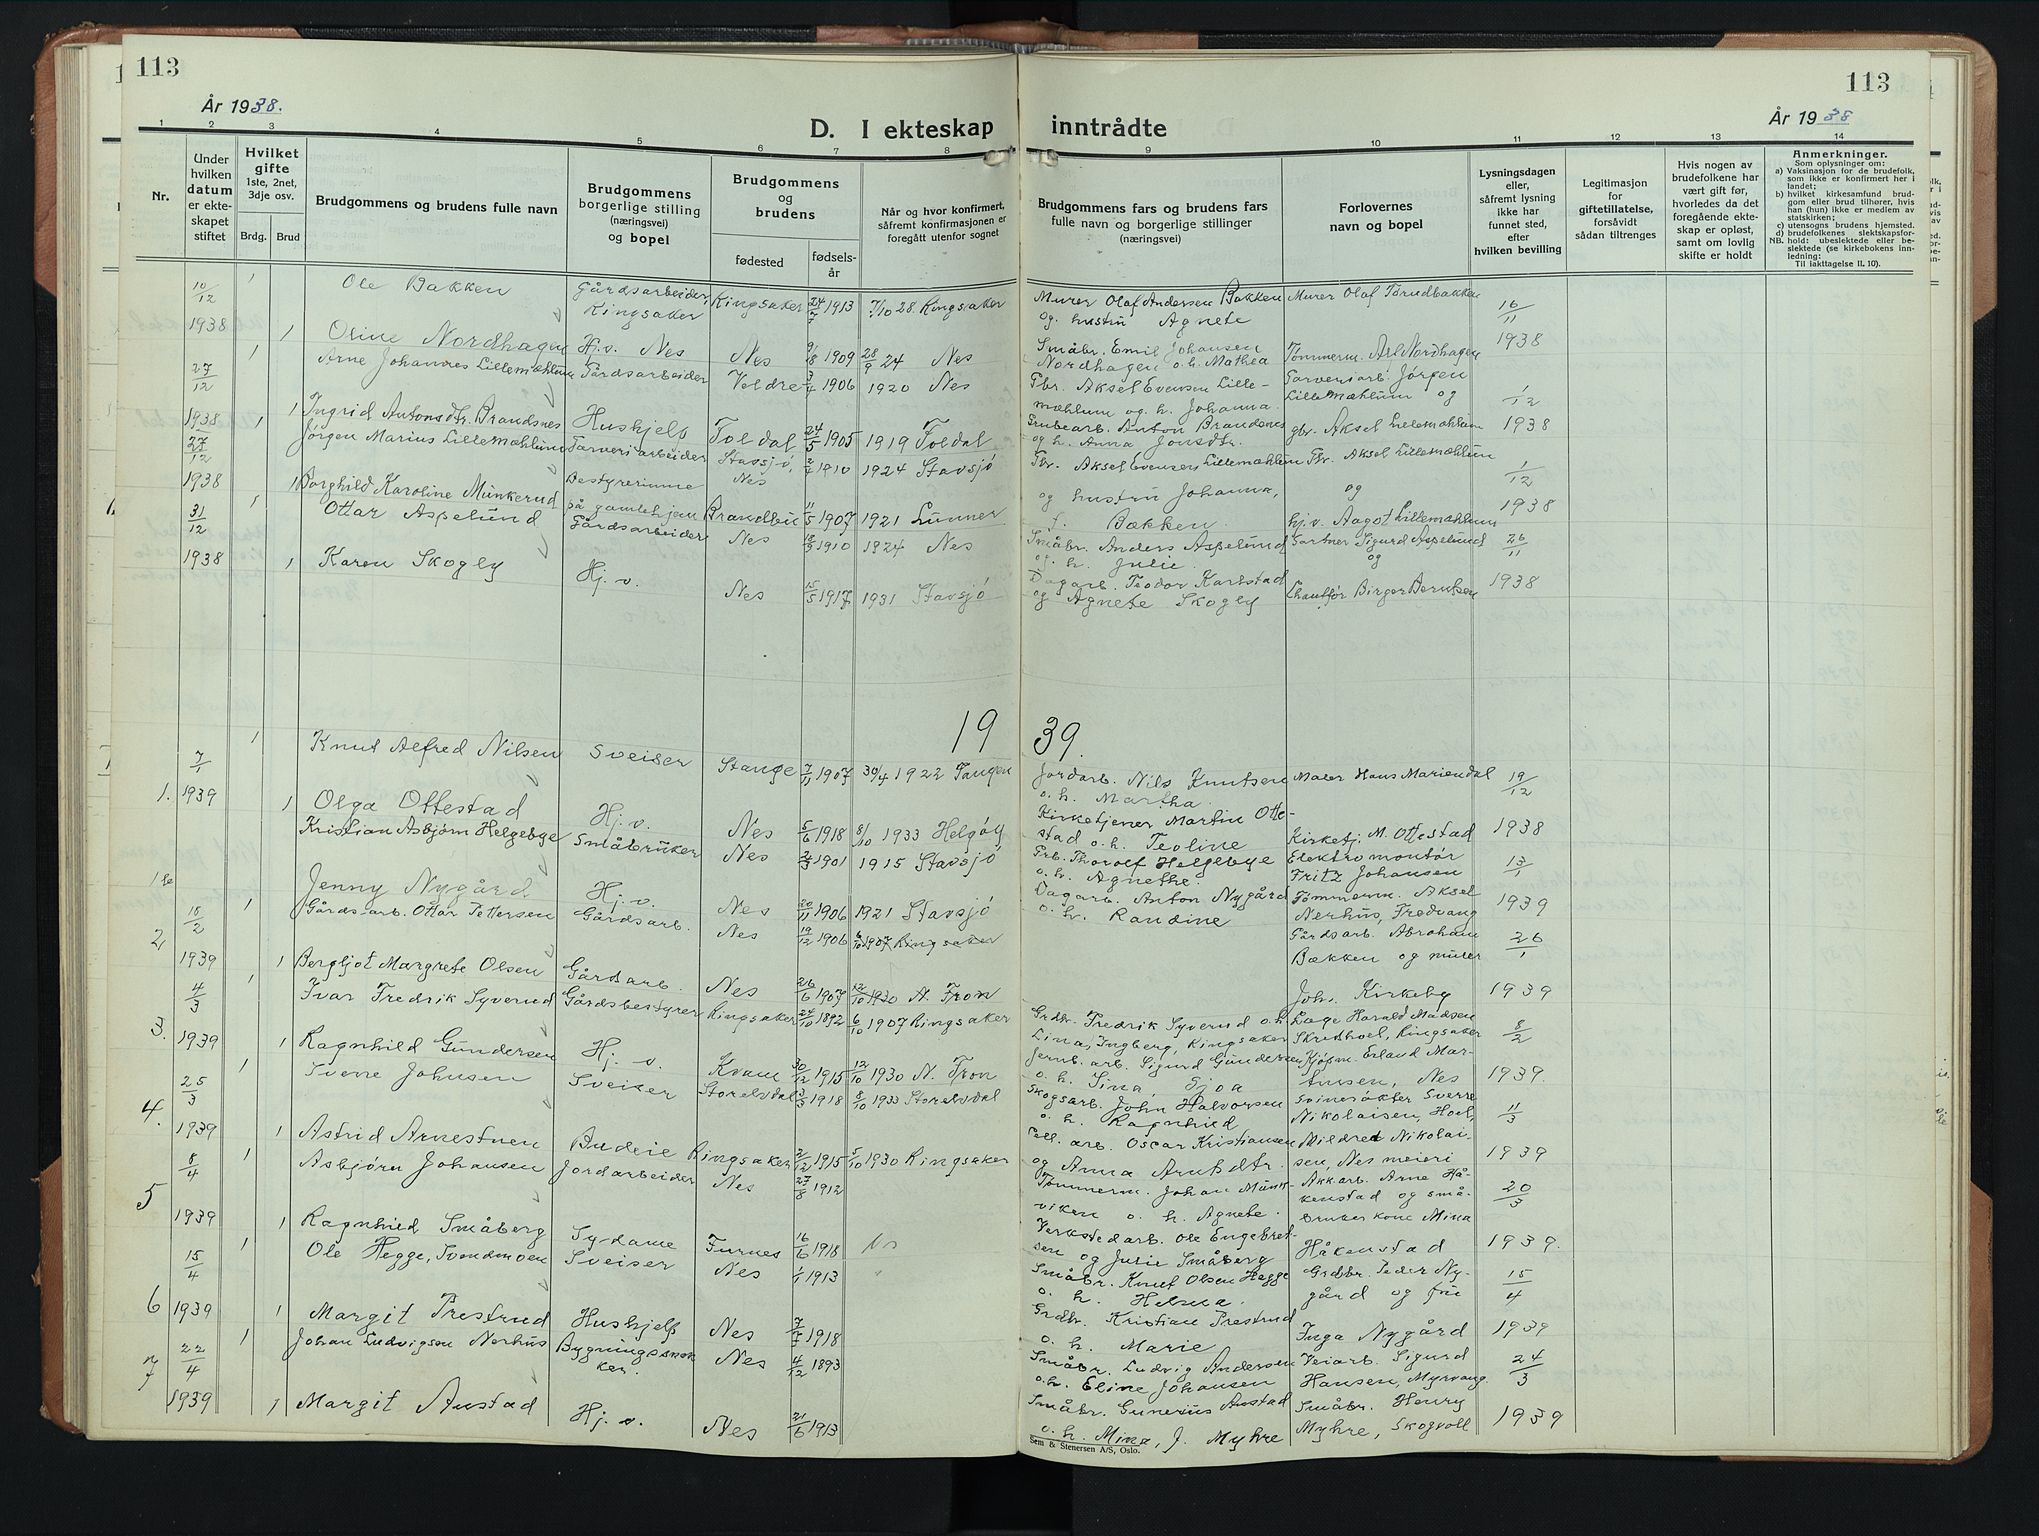 113
113
År 1938.
År 1938
D. I ekteskap inntrådte
1 2 3 4 5 6 7 8 9 10 11 12 13 14
Nr.
Under hvilken datum er ekteskapet stiftet
Hvilket gifte 1ste, 2net, 3dje osv.
Brdg. Brud
Brudgommens og brudens fulle navn
Brudgommens borgerlige stilling (næringsvei) og bopel
Brudgommens og brudens
fødested
fødselsår
Når og hvor konfirmert, såfremt konfirmasjonen er foregått utenfor sognet
Brudgommens fars og brudens fars fulle navn og borgerlige stillinger (næringsvei)
Forlovernes navn og bopel
Lysningsdagen eller, såfremt lysning ikke har funnet sted, efter hvilken bevilling
Legitimasjon for giftetillatelse, forsåvidt sådan tiltrenges
Hvis nogen av brudefolkene har vært gift før, hvorledes da det foregående ekteskap er opløst, samt om lovlig skifte er holdt
Anmerkninger.
Som oplysninger om:
a) Vaksinasjon for de brudefolk, som ikke er konfirmert her i landet;
b) hvilket kirkesamfund brudgom eller brud tilhører, hvis han (hun) ikke er medlem av statskirken;
c) utensogns brudens hjemsted.
d) brudefolkenes slektskapsforhold: ubeslektede eller beslektede (se kirkebokens innledning:
NB.
Til iakttagelse II. 10).
10/12 1938 1 Ole Bakken Gårdsarbeider, Ringsaker Ringsaker 24/7 1913 7/10 28. Ringsaker Murer Olaf Andersen Bakken og hustru Agnete Murer Olaf Tørudbakken 16/11 1938
1 Osine Nordhagen Hj.v. Nes Nes 9/18 1909 28/9 24 Nes Småbr. Emil Johansen Nordhagen o.h. Mathea Tømmerm. Arl Nordhagen
27/12 1938 1 Arne Johannes Lillemæhlum Gårdsarbeider Veldre 3/4 1906 1920 Nes Gbr. Aksel Evensen Lillemæhlum og h. Johanna. Garveriarb. Jørgen Lillemæhlum og 1/12 1938
1 Ingrid Antonsdtr. Brandsnes Hushjelp Foldal 24/5 1905 1919 Foldal Grubearb. Anton Brandenes og h. Anna Jonsdtr. gbr. Aksel Lillemæhlum
27/12 1938 1 Jørgen Marius Lillemæhlum Garveriarbeider Stavsjø, Nes 2/7 1910 1924 Stavsjø Gbr. Aksel Evensen Lillemæhlum og hustru Johanna, Gbr. Aksel Lillemæhlum og 1/12 1938
1 Borghild Karoline Munkerud Bestyrerinne på gamlehjem Brandbu 11/5 1907 1921 Lunner f. Bækken. hj.v. Aagot Lillemæhlum
31/12 1938 1 Ottar Aspelund Gårdsarbeider Nes 18/9 1910 1924 Nes Småbr. Anders Aspelund og h. Julie. Gartner Sigurd Aspelund og 26/11 1938
1 Karen Skogly Hj. v. Nes 15/5 1917 1931 Stavsjø Dagarb. Teodor Karlstad og Agnete Skogly Chauffør Birger Berntsen
19 39.
1. 7/1 1939 1 Knut Alfred Nilsen Sveiser Stange 7/11 1907 30/4 1922 Tangen Jordarb. Nils Knutsen o.h. Martha. Maler Hans Mariendal 19/12 1938
1 Olga Ottestad Hj.v. Nes 5/6 1918 8/10 1933 Helgøy Kirketjener Martin Ottestad o.h. Teoline Kirketj. M. Ottestad
Kristian Asbjørn Helgebye Småbruker Nes 24/3 1901 1915 Stavsjø Grb. Thorolf Helgebye o.h. Agnethe. Elektromontør Fritz Johansen 13/1 1939
Jenny Nygård Hj.v. Nes 20/11 1906 1921 Stavsjø Dagarb. Anton Nygård o.h. Randine Tømmerm. Aksel Nerhus, Fredvang
2 18/2 1939 1 Gårdsarb. Ottar Pettersen Gårdsarb. Nes 19/12 1906 6/10 1907 Ringsaker Gårdsarb. Abraham Bækken og murer 26/1 1939
1 Bergljot Margrete Olsen Gårdarb. Nes 26/6 1907 12/10 1930 N. Fron Joh. Kirkeby
3. 4/3 1939 1 Ivar Fredrik Syverud Gårdsbestyrer Ringsaker 24/10 1892 6/10 1907 Ringsaker Grdbr. Fredrik Syverud o.h. Lina, Ingberg, Ringsaker Læge Harald Madsen Skredhoel, Ringsaker 8/2 1939.
1 Ragnhild Gundersen Hj. v. Kvam 30/12 1915 12/10 1930 N. Fron Jernb. arb. Sigurd Gundersen o. h. Lina, Kjøpm. Erland Martinsen, Nes
4. 25/3 1939 1 Svene Johnsen Sveiser Storelvdal 3/3 1918 8/10 1933 Storelvdal Skogsarb. John Halvorsen o. h. Ragnhild Svinerøkter Sverre Nikolaisen, Hoel, 11/3 1939
1 Astrid Arnestuen Budeie Ringsaker 2/12 1915 5/10 1930 Ringsaker Cell. arb. Oscar Kristiansen og Anna Arntsdtr. Mildred Nikolaisen, Nes meieri
5 8/4 1939 1 Asbjørn Johansen Jordarbeider Nes 27/8 1912 Tømmerm. Johan Munkviken o. h. Agnete. Akkarb. Arne Håkenstad og småbruker kone Mina Håkenstad 20/3 1939.
1 Ragnhild Småberg Sydame Furnes 16/6 1918 Verkstedarb. Ole Engebretsen og Julie Småberg
6 15/4 1939 1 Ole Hegge, Svendmoen Sveiser Nes 1/1 1913 Småbr. Knut Olsen Hegge o. h. Helma. Grdbr. Peder Nygård og fru 15/4 1939
1 Margit Prestrud Hushjelp Nes 7/7 1918 Grdb. Kristian Prestrud o. h. Marie Inga Nygård
7 22/4 1939 1 Johan Ludvigsen Nerhus Bygningssnekker. Nes 4/12 1893 Småbr. Ludvig Andersen o.h. Eline Johansen Veiarb. Sigurd Hansen, Myrvang. 24/3 1939
1 Margit Austad Hj. v. Nes 21/6 1913 Småbr. Gunerius Austad o. h. Mina, f. Myhre Småbr. Henry Myhre, Skogvoll
Sem & Stenersen A/S, Oslo.